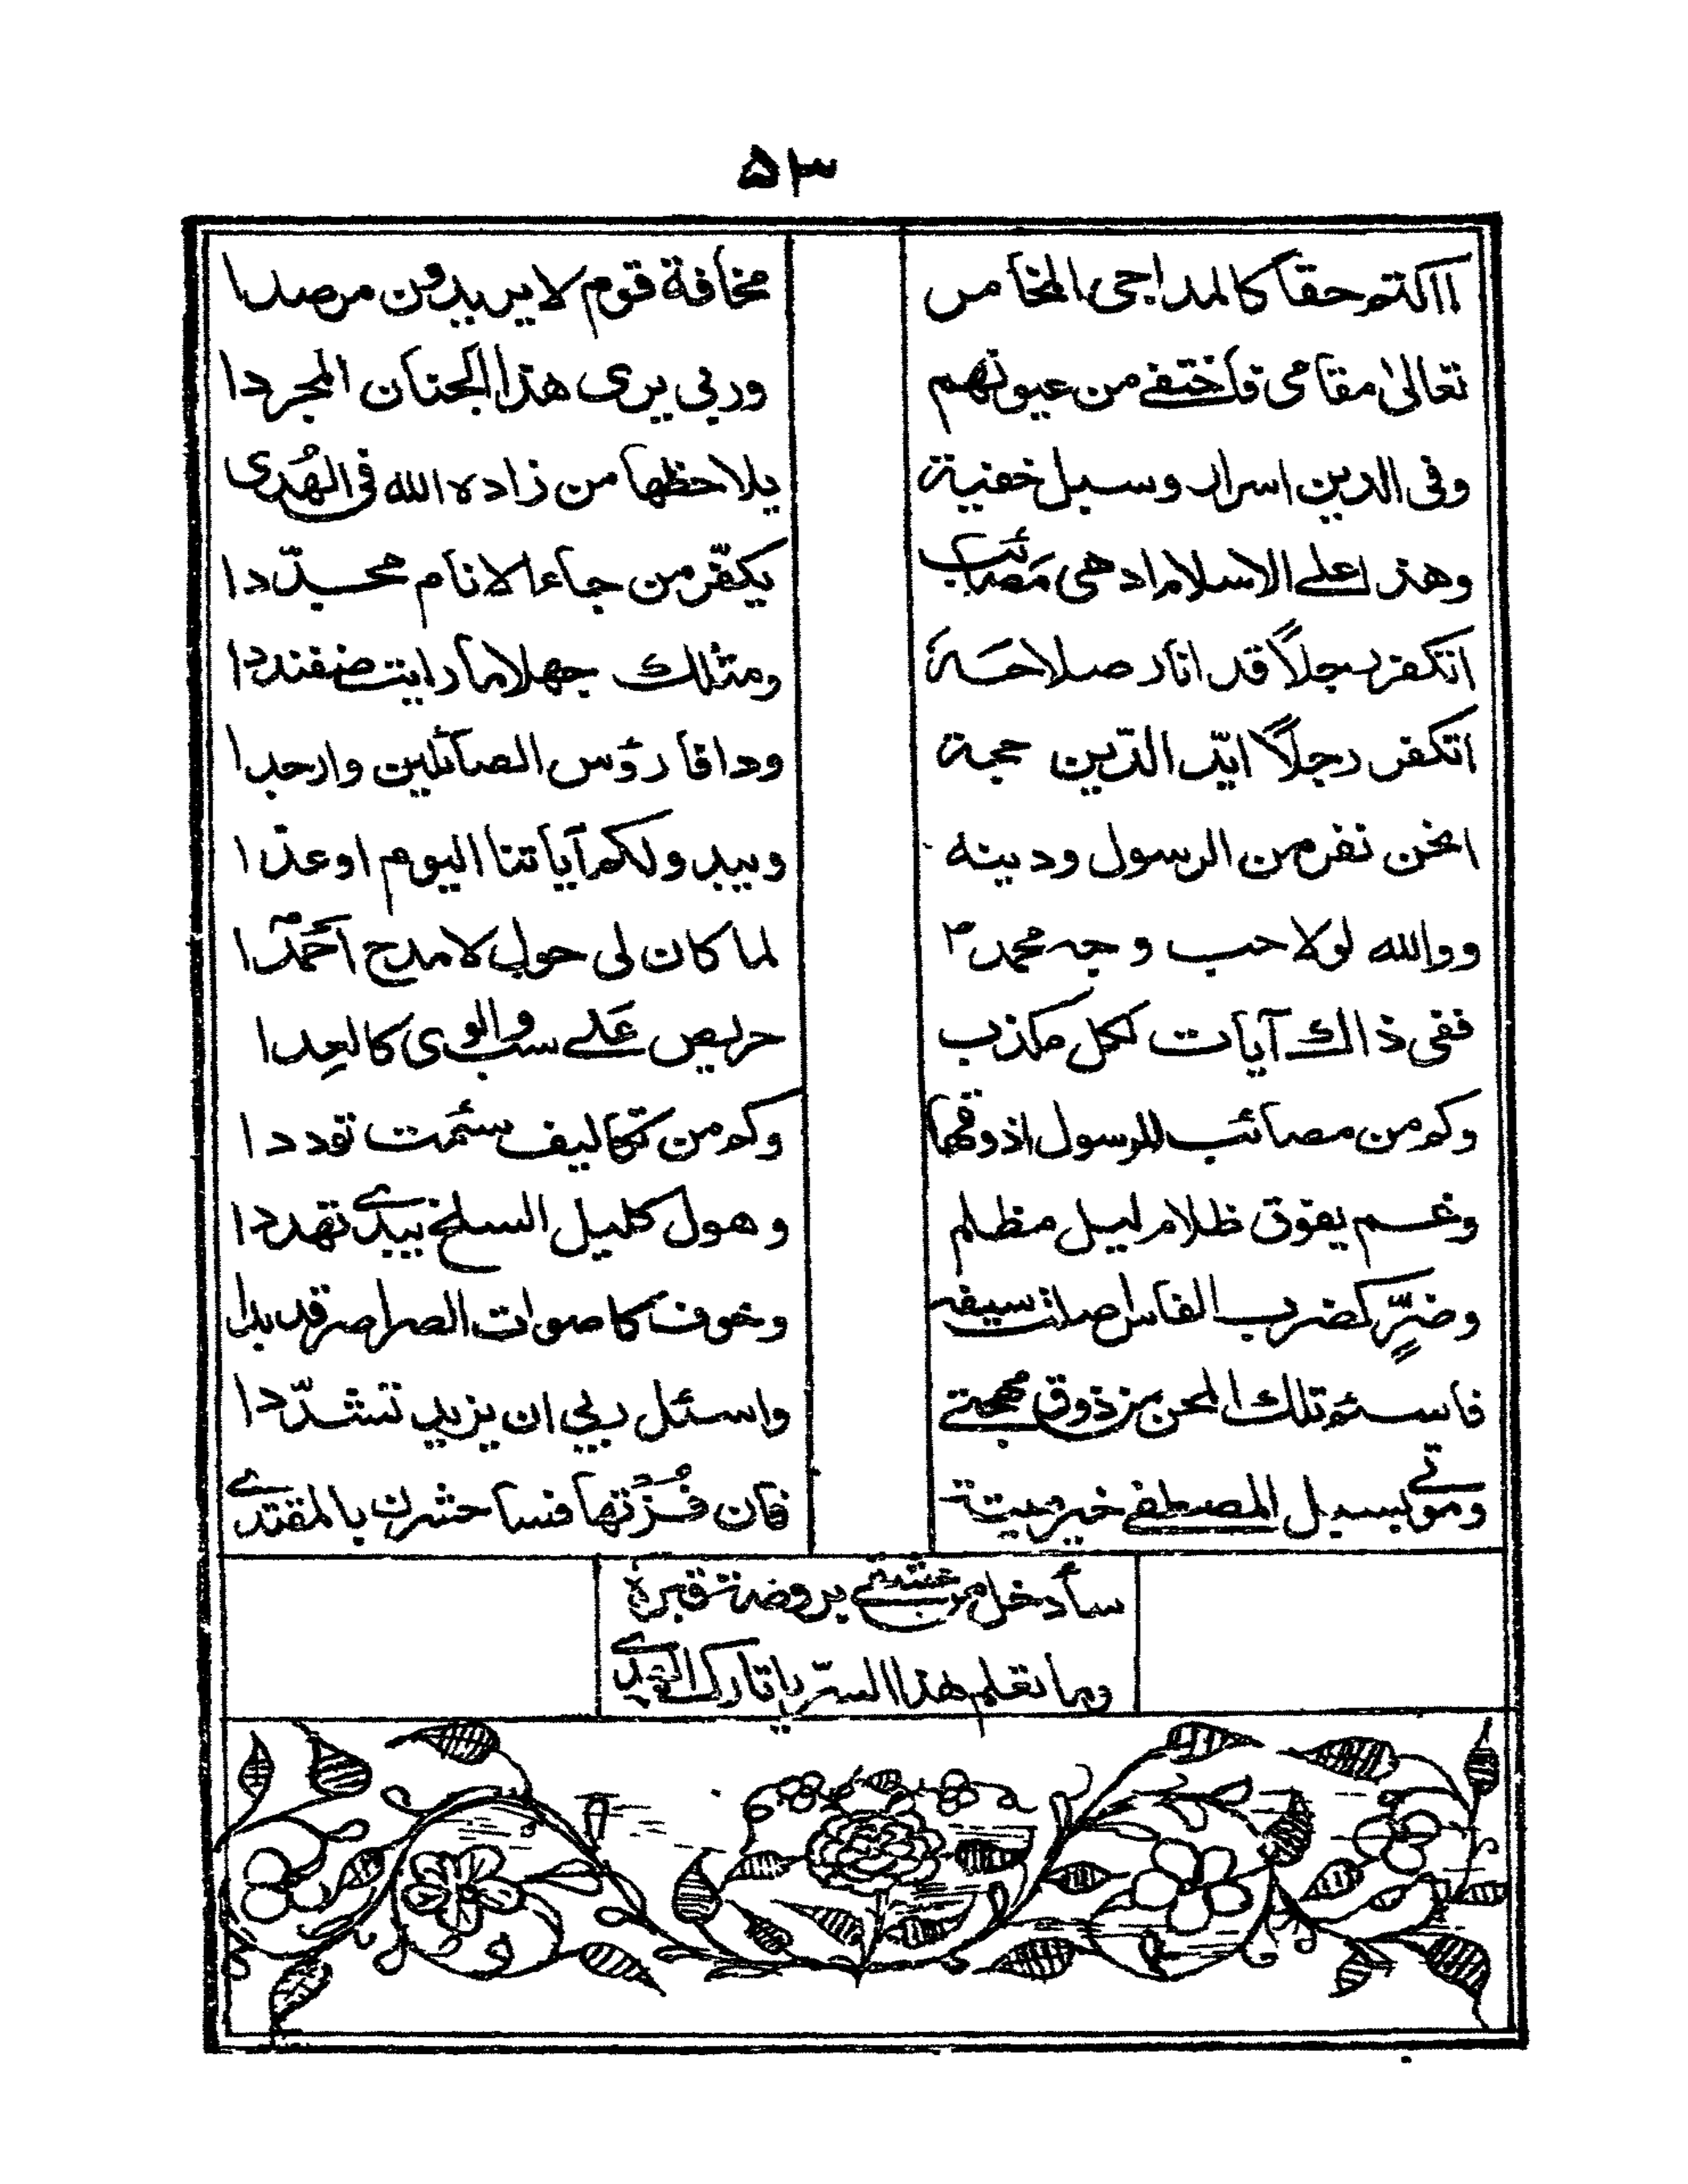 ۵۳
ااكتم حقا كالمداجى المخامر مخافة قوم لا يريدون مرصدا
تعالىٰ مقامى فاختفے من عيونهم وربى يرى هذا الجنان المجردا
وفى الدين اسرار وسبل خفية يلاحظها من زاده الله فى الهُدى
وهذا علے الاسلام ادهى مصائب يكفّر من جاء الانام محبدّدا
اتكفر رجلاً قد انار صلاحه ومثلك جهلا ما رايت ضفنددا
اتكفر رجلاً ايّد الدّين حجة ودافا رؤس الصائلين وارجدا
انحن نفر من الرسول ودينه ويبد ولكم آياتنا اليوم اوغدا
ووالله لولا حب وجه محمدؐ لما كان لى حول لامدح اَحْمدَا
ففى ذالك آيات لكل مكذب حريص عَلے سب والوى كالعِدا
وكم من مصائب للرسول اذوقها وكم من تكاليف سئمت توددا
وغم يفوق ظلام ليل مظلم وهول كليل السلخ يبدے تهددا
وضرٍّ كضرب الفاس اصلت سيفه وخوف كاصوات الصراصر قد بدا
فاسئم تلك المحن من ذوق مهجتے واسئل ربي ان يزيد تشدّدا
وموتے بسبيل المصطفے خير ميتة فان فُزتُها فسا حشرن بالمقتدے
سأدخل من عشقے بروضة قبرهٖ
وما تعلم هذا السرّ يا تارك الهدے